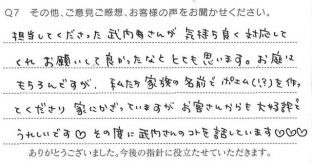 Q7 その他、ご意見ご感想、お客様の声をお聞かせください。
担当してくださった 武内さんが 気持ち良く対応して
くれ お願いして良かったなと とても思います。お庭は
もちろんですが、私たち家族の名前でポエム(!?)を作っ
てくださり 家にかざっていますが お客さんからも大好評で
うれしいです♡ その度に武内さんのコトを話しています♡♡♡
ありがとうございました。今後の指針に役立たせていただきます。